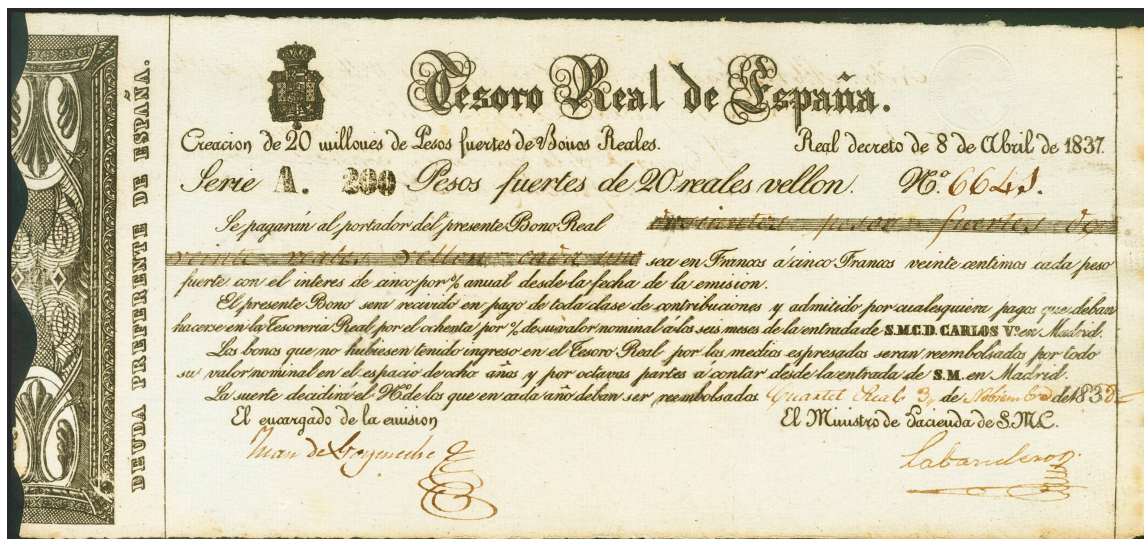 DEUDA PREFERENTE DE ESPAÑA.
Tesoro Real de España.
Creacion de 20 millones de Pesos fuertes de Bonos Reales. Real decreto de 8 de Abril de 1837.
Serie A. 200 Pesos fuertes de 20 reales vellon. Nº 6641.
Se pagarán al portador del presente Bono Real doscientos pesos fuertes de
veinte reales vellon cada uno sea en Francos á cinco Francos veinte centimos cada peso
fuerte con el interes de cinco por % anual desde la fecha de la emision.
El presente Bono será recivido en pago de toda clase de contribuciones y admitido por cualesquiera pagos que deban
hacerse en la Tesoreria Real por el ochenta por % de su valor nominal a los seis meses de la entrada de S.M.C.D. CARLOS Vº en Madrid.
Los bonos que no hubiesen tenido ingreso en el Tesoro Real por los medios espresados seran reembolsados por todo
su valor nominal en el espacio de ocho años y por octavas partes a contar desde la entrada de S.M. en Madrid.
La suerte decidirá el Nº de los que en cada año deban ser reembolsados Quartel Real 3, de Nobiembre de 1838
El encargado de la emision El Ministro de Hacienda de S.M.C.
Juan de Goyeneche Labandero